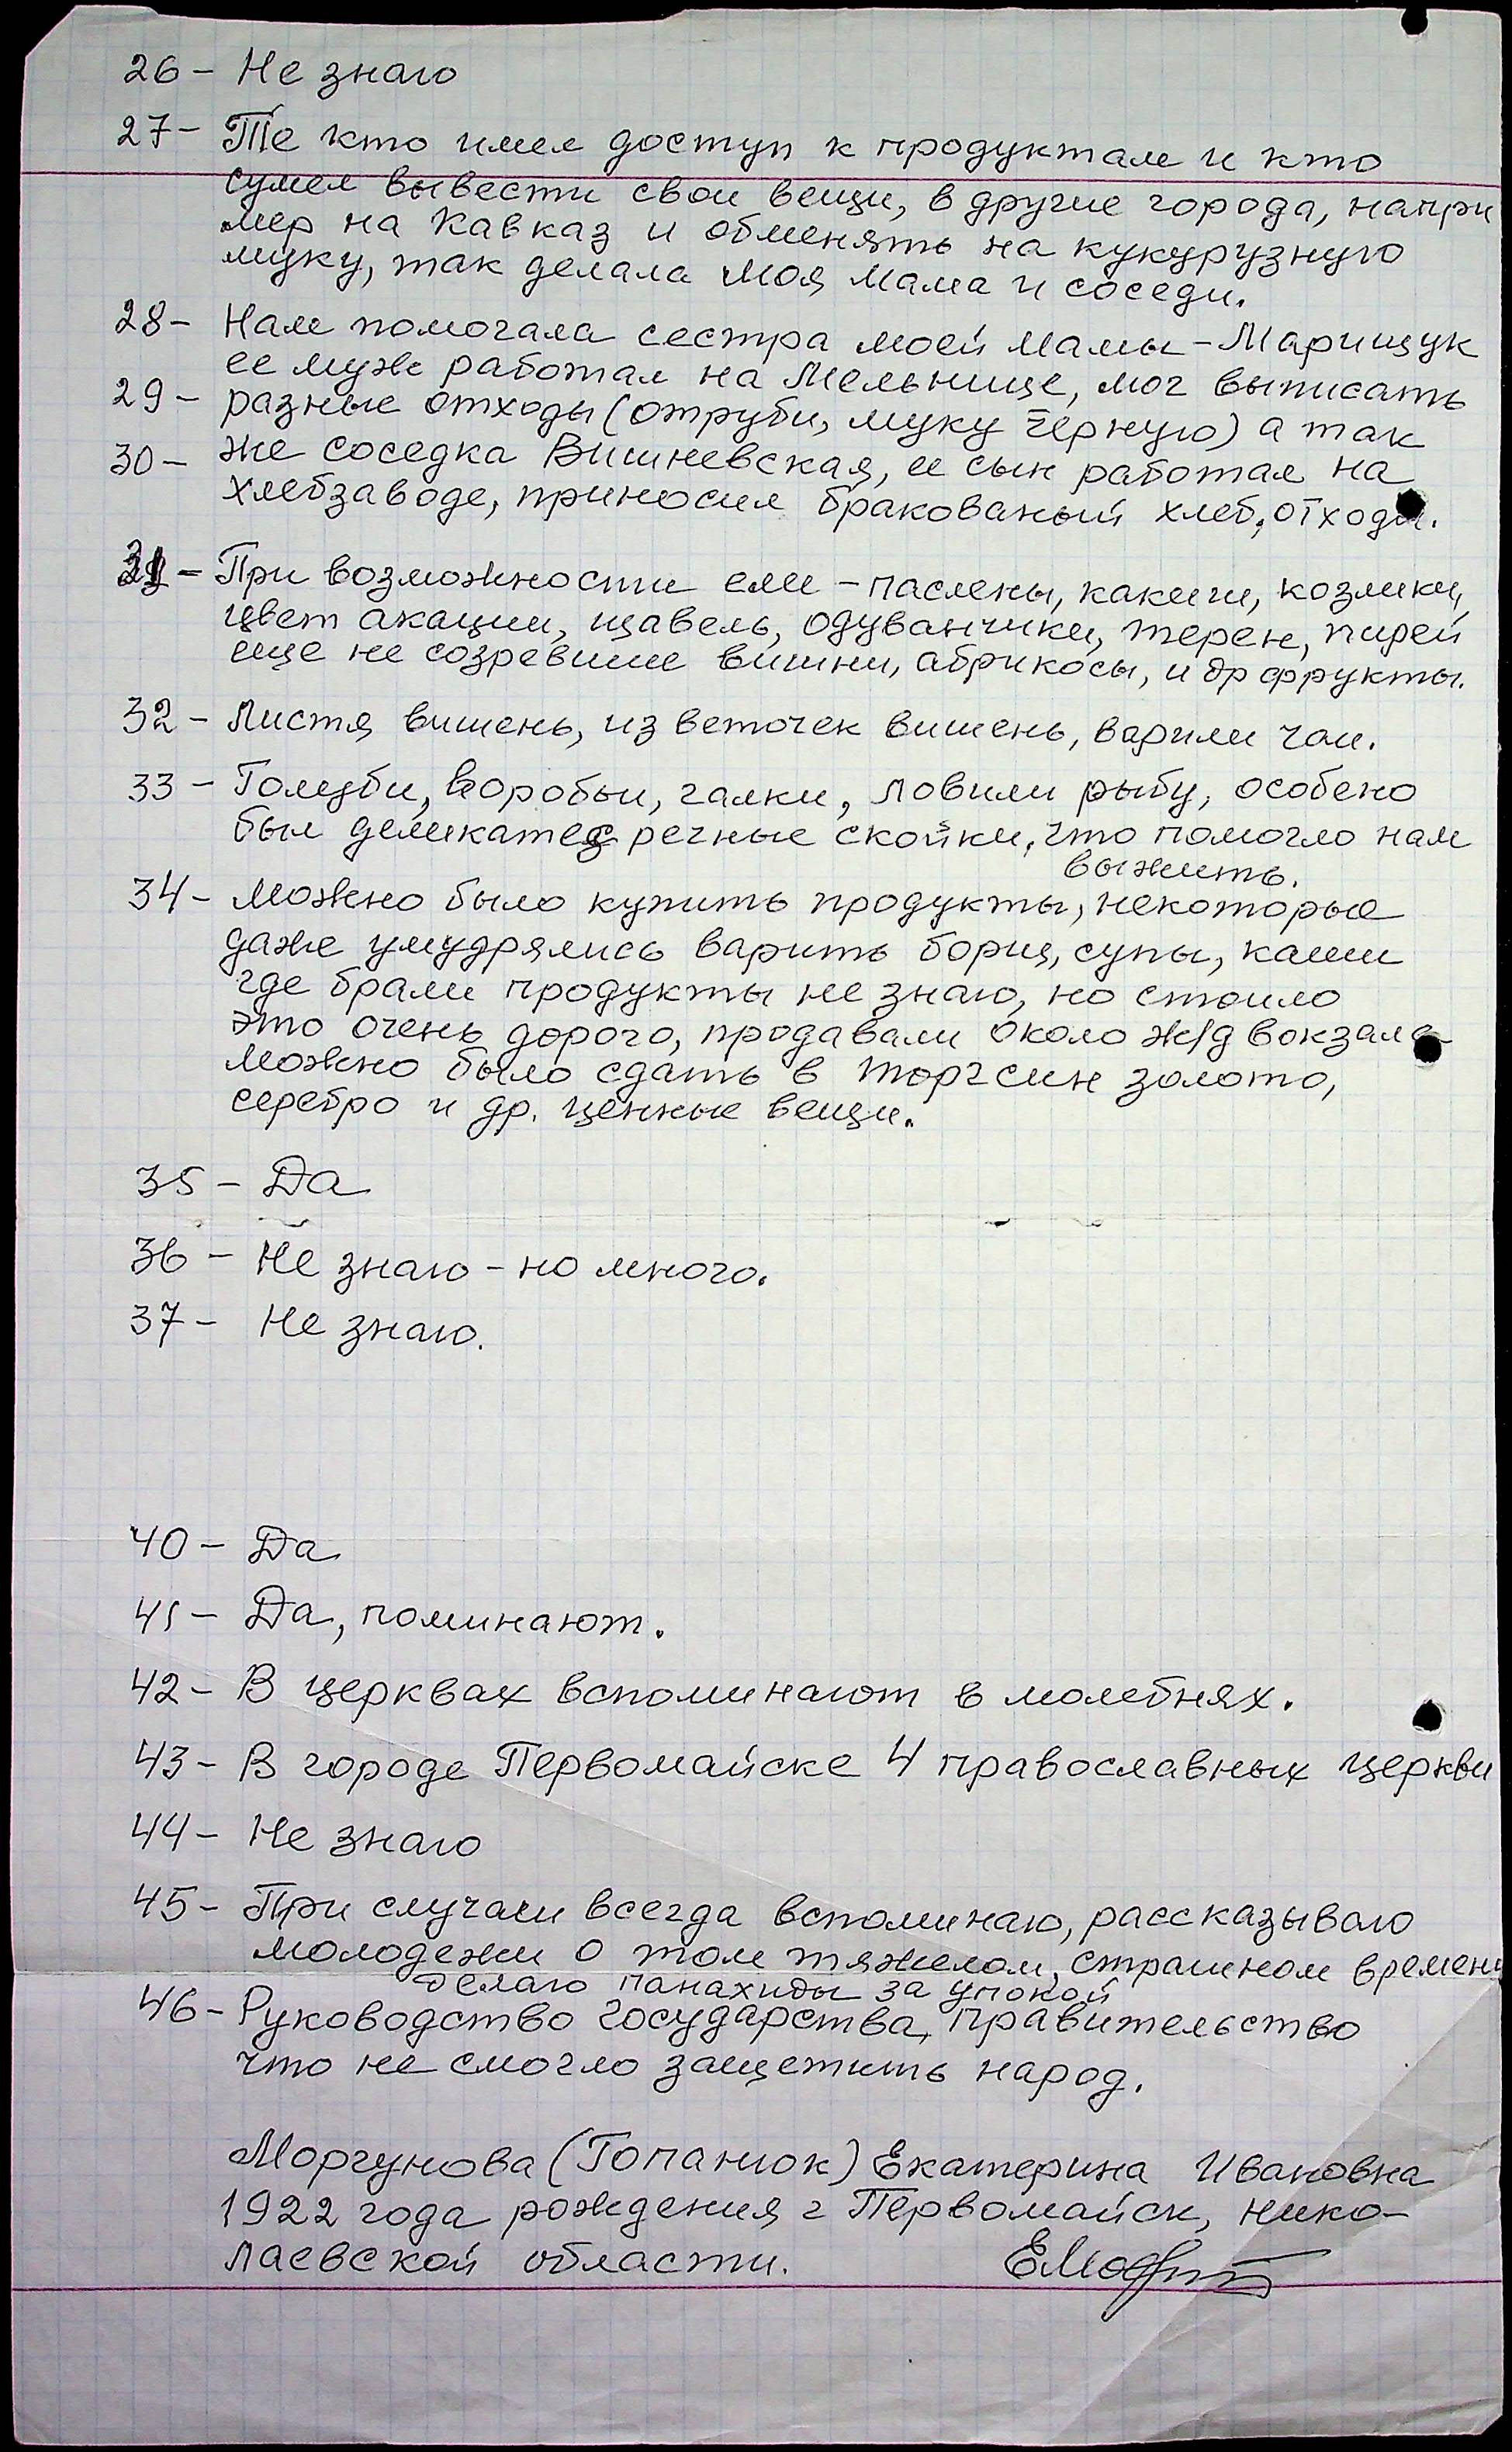 26 - Не знаю
27 - Те кто имел доступ к продуктам и кто
сумел вывести свои вещи, в другие города, напри
мер на Кавказ и обменять на кукурузную
муку, так делала моя мама и соседи.
28 - Нам помогала сестра моей мамы - Марищук
ее муж работал на мельнице, мог выписать
29 - разные отходы (отруби, муку черную) а так
30 - же соседка Вишневская, ее сын работал на
хлебзаводе, приносил бракованый хлеб, отходы.
31 - При возможности ели - паслены, какиши, козлики,
цвет акации, щавель, одуванчики, терен, пирей
еще не созревшие вишни, абрикосы, и др фрукты.
32 - Листя вишень, из веточек вишень, варили чаи.
33 - Голуби, воробьи, галки, ловили рыбу, особено
был деликатес речные скойки, что помогло нам
выжить.
34 - Можно было купить продукты, некоторые
даже умудрялись варить борщ, супы, каши
где брали продукты не знаю, но стоило
это очень дорого, продавали около ж/д вокзала
можно было сдать в торгсин золото,
серебро и др. ценные вещи.
35 - Да
36 - Не знаю - но много.
37 - Не знаю.
40 - Да
41 - Да, поминают.
42 - В церквах вспоминают в молебнях.
43 - В городе Первомайске 4 православных церкви
44 - Не знаю
45 - При случаи всегда вспоминаю, рассказываю
молодежи о том тяжелом, страшном времени
делаю панахиды за упокой
46 - Руководство государства, правительство
что не смогло защетить народ.
Моргунова (Гопанюк) Екатерина Ивановна
1922 года рождения г Первомайск, Нико-
лаевской области.